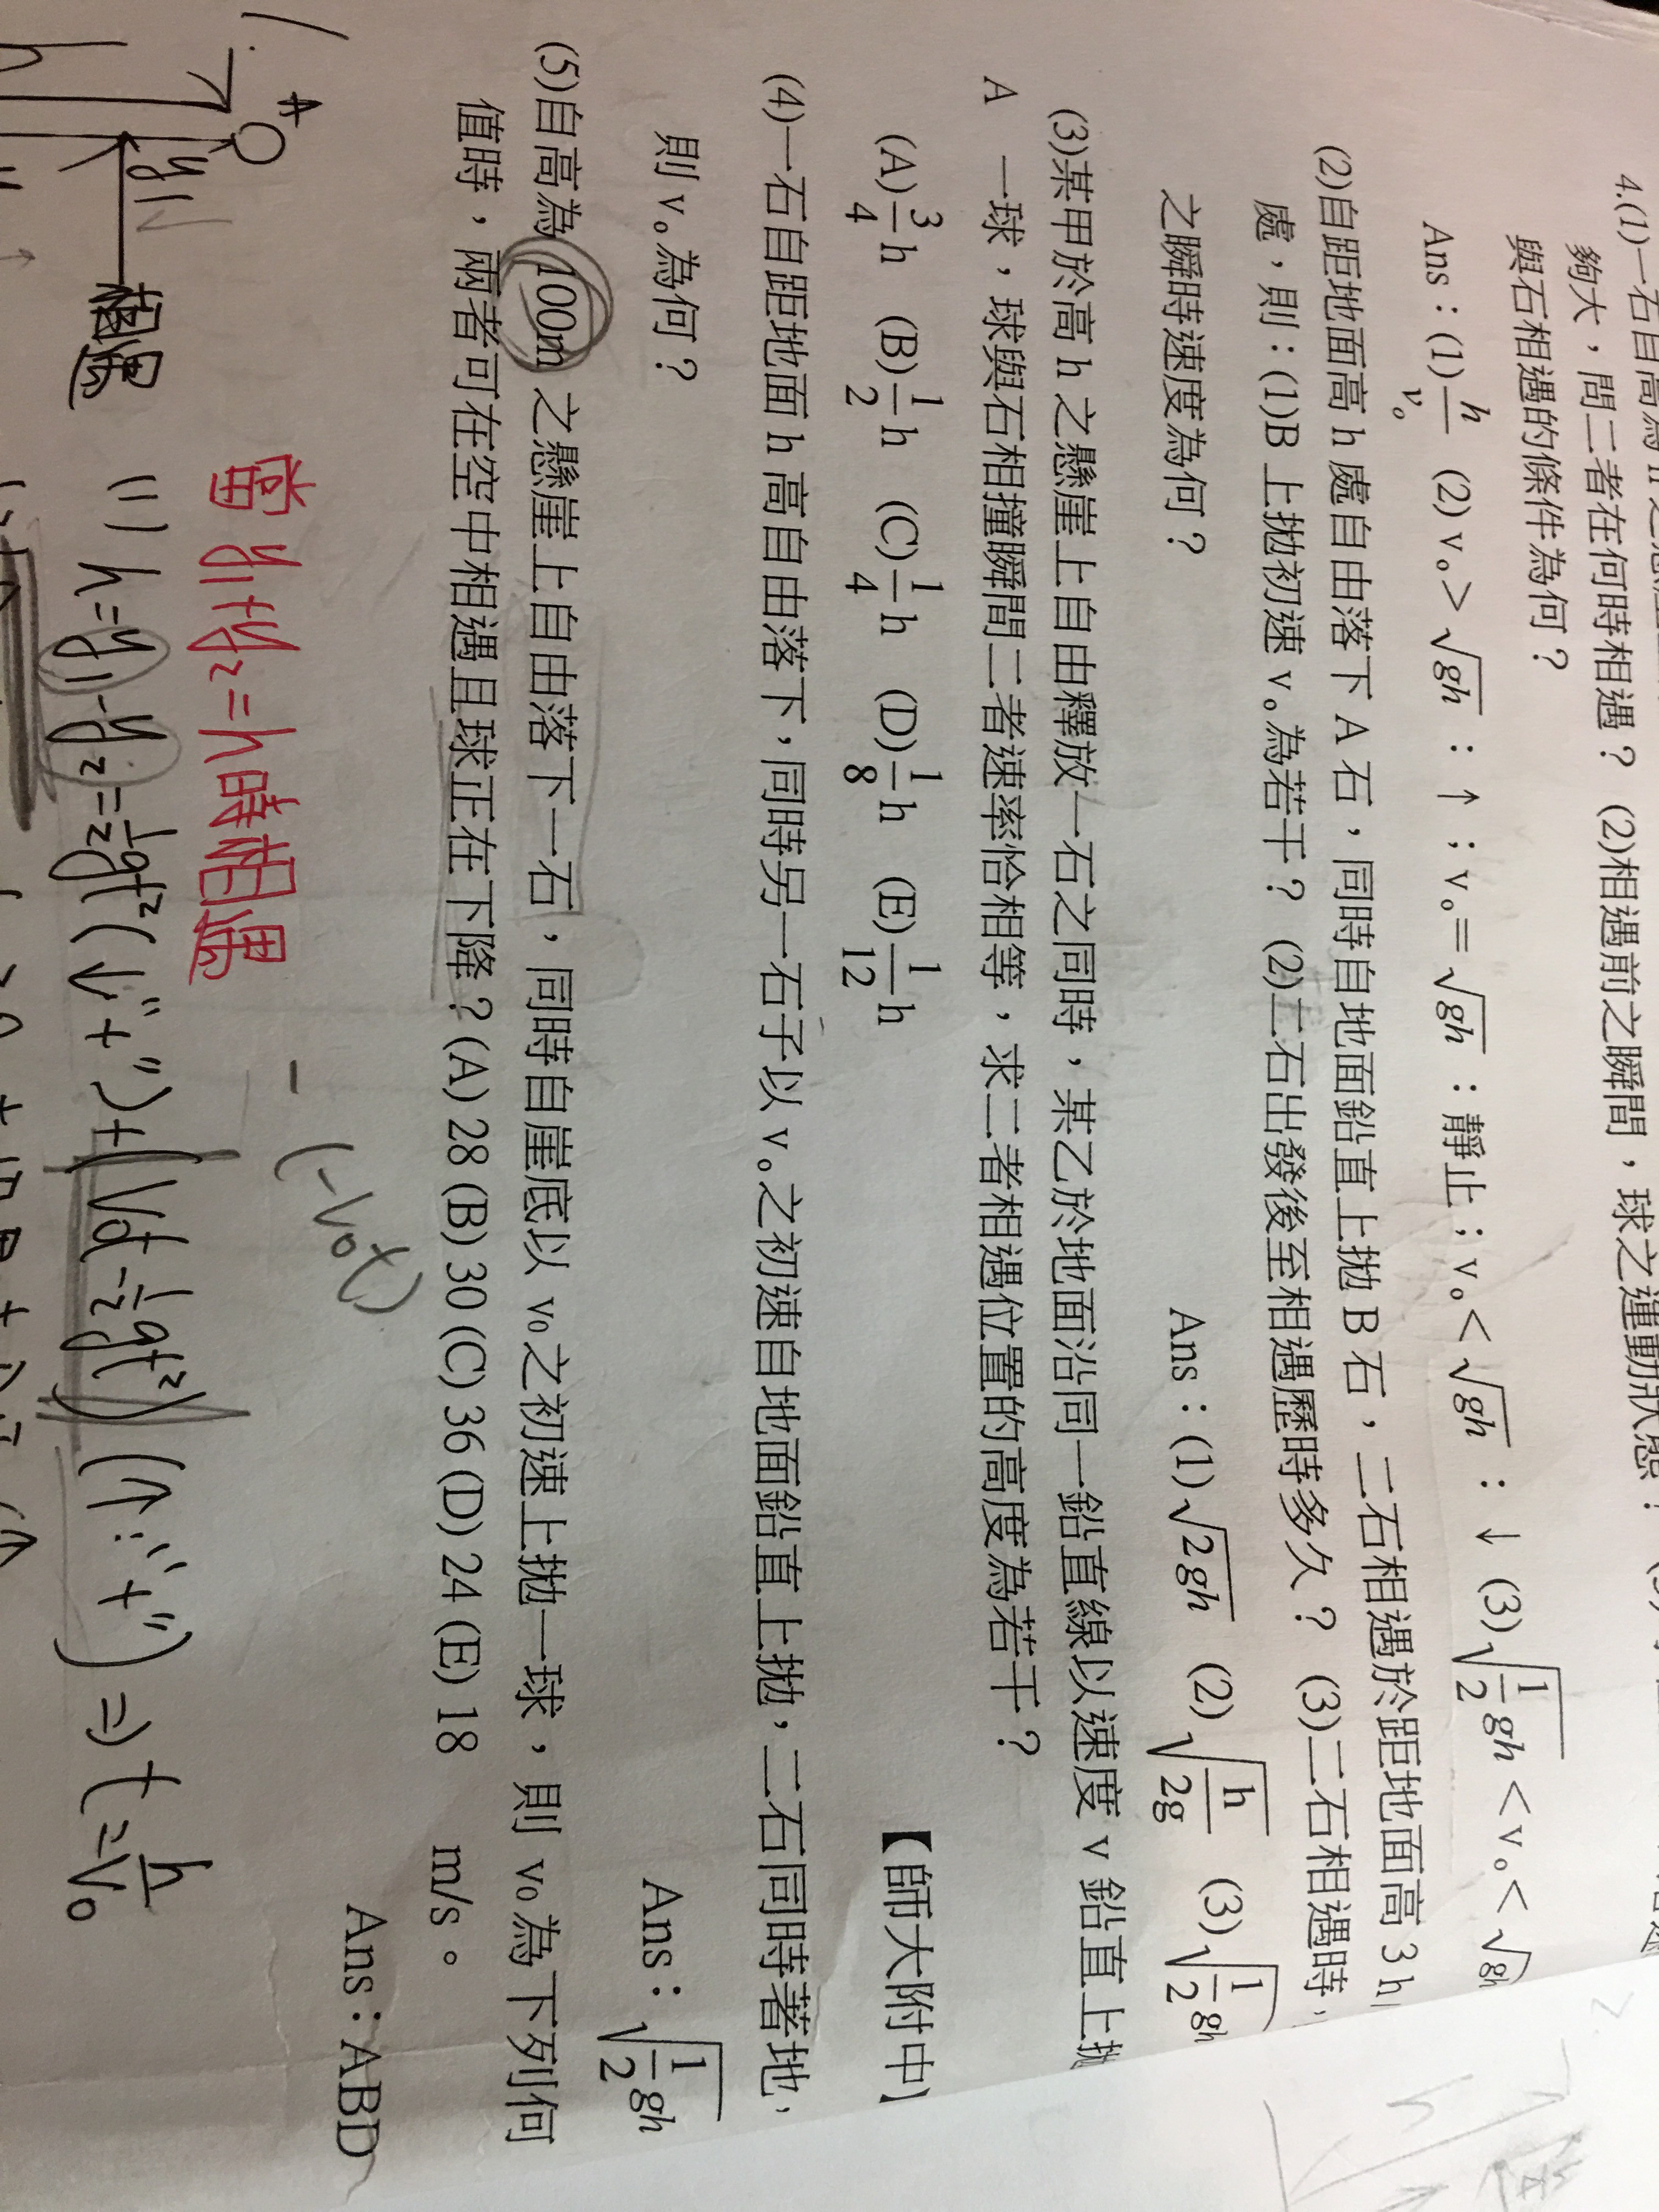 4.(1)一石自高為h之懸崖
夠大，問二者在何時相遇？ (2)相遇前之瞬間，球之運動狀態？
與石相遇的條件為何？
Ans：(1) h/v₀ (2) v₀ > √gh：↑；v₀ = √gh：靜止；v₀ < √gh：↓ (3) √(1/2 gh) < v₀ < √gh
(2)自距地面高 h 處自由落下 A 石，同時自地面鉛直上拋 B 石，二石相遇於距地面高 3 h
處，則：(1)B 上拋初速 v₀為若干？ (2)二石出發後至相遇歷時多久？ (3)二石相遇時，
之瞬時速度為何？
Ans：(1) √2gh (2) √(h/2g) (3) √(1/2 gh)
(3)某甲於高 h 之懸崖上自由釋放一石之同時，某乙於地面沿同一鉛直線以速度 v 鉛直上拋
A 一球，球與石相撞瞬間二者速率恰相等，求二者相遇位置的高度為若干？
(A) 3/4 h (B) 1/2 h (C) 1/4 h (D) 1/8 h (E) 1/12 h
【師大附中】
(4)一石自距地面 h 高自由落下，同時另一石子以 v₀之初速自地面鉛直上拋，二石同時著地，
則 v₀為何？
Ans：√(1/2 gh)
(5)自高為 100m 之懸崖上自由落下一石，同時自崖底以 v₀之初速上拋一球，則 v₀為下列何
值時，兩者可在空中相遇且球正在下降？(A) 28 (B) 30 (C) 36 (D) 24 (E) 18 m/s。
Ans：ABD
(-v₀t)
當 y₁+y₂=h時相遇
A
y₁
相遇
(1) h=y₁-y₂=1/2gt²(↓"+")+(v₀t-1/2gt²)(↑:"+") ⇒ t=h/v₀